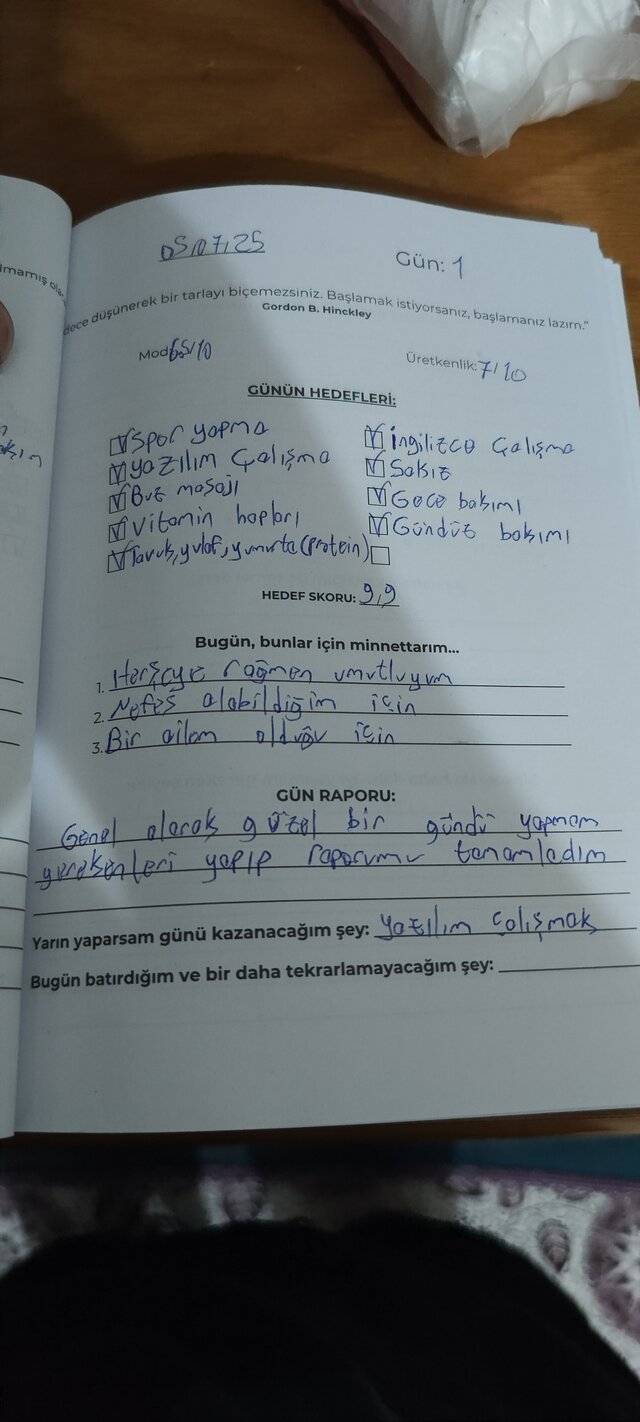 05/07/25
Gün: 1
imamış ola
dece düşünerek bir tarlayı biçemezsiniz. Başlamak istiyorsanız, başlamanız lazım."
Gordon B. Hinckley
Mod: 6.5/10
Üretkenlik: 7/10
GÜNÜN HEDEFLERİ:
Spor yapma
İngilizce Çalışma
Yazılım Çalışma
Sakız
Buz masajı
Gece bakımı
Vitamin hapları
Gündüz bakımı
Tavuk, yulaf, yumurta (protein)
HEDEF SKORU: 9,9
Bugün, bunlar için minnettarım...
1. Herşeye rağmen umutluyum
2. Nefes alabildiğim için
3. Bir ailem olduğu için
GÜN RAPORU:
Genel olarak güzel bir gündü yapmam
gerekenleri yapıp raporumu tamamladım
Yarın yaparsam günü kazanacağım şey: Yazılım çalışmak
Bugün batırdığım ve bir daha tekrarlamayacağım şey: